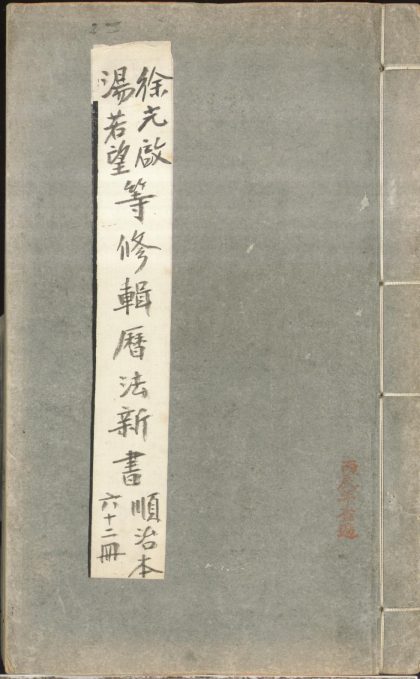 徐光啟
湯若望
等修輯曆法新書
順治本
六十二冊